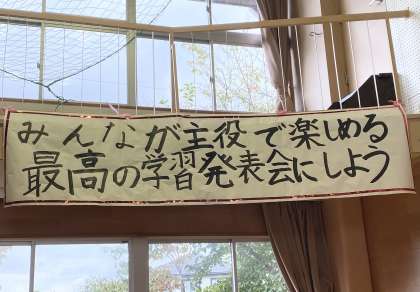 みんなが主役で楽しめる
最高の学習発表会にしよう